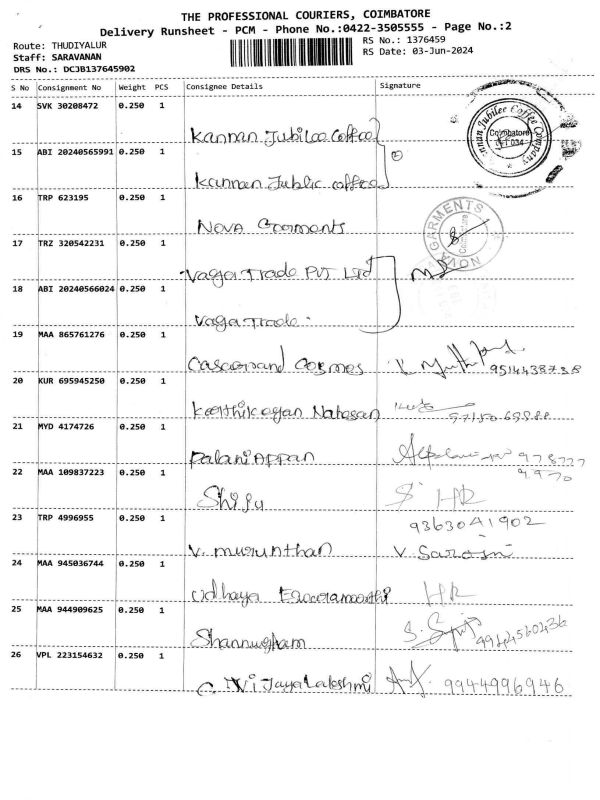 THE PROFESSIONAL COURIERS, COIMBATORE
Delivery Runsheet - PCM - Phone No.:0422-3505555 - Page No.:2
Route: THUDIYALUR
RS No.: 1376459
Staff: SARAVANAN
RS Date: 03-Jun-2024
DRS No.: DCJB137645902
S No Consignment No Weight PCS Consignee Details Signature
14 SVK 30208472 0.250 1
Kannan Jubilee Coffee
15 ABI 20240565991 0.250 1
Kannan Jublic coffee
16 TRP 623195 0.250 1
NOVA Garments
17 TRZ 320542231 0.250 1
Vaga Trade PVT Ltd
18 ABI 20240566024 0.250 1
Vaga Trade.
19 MAA 865761276 0.250 1
Cosmos 9514438738
20 KUR 695945250 0.250 1
Karthikeyan Natesan
21 MYD 4174726 0.250 1
Palaniappan
22 MAA 109837223 0.250 1
Shifu
23 TRP 4996955 0.250 1
9363041902
V. murunthan V. Sarojini
24 MAA 945036744 0.250 1
udhaya
25 MAA 944909625 0.250 1
Shanmugham 9944560436
26 VPL 223154632 0.250 1
C. Vijayalakshmi 9944996946
Kannan Jubilee Coffee Company
Coimbatore
NOVA GARMENTS